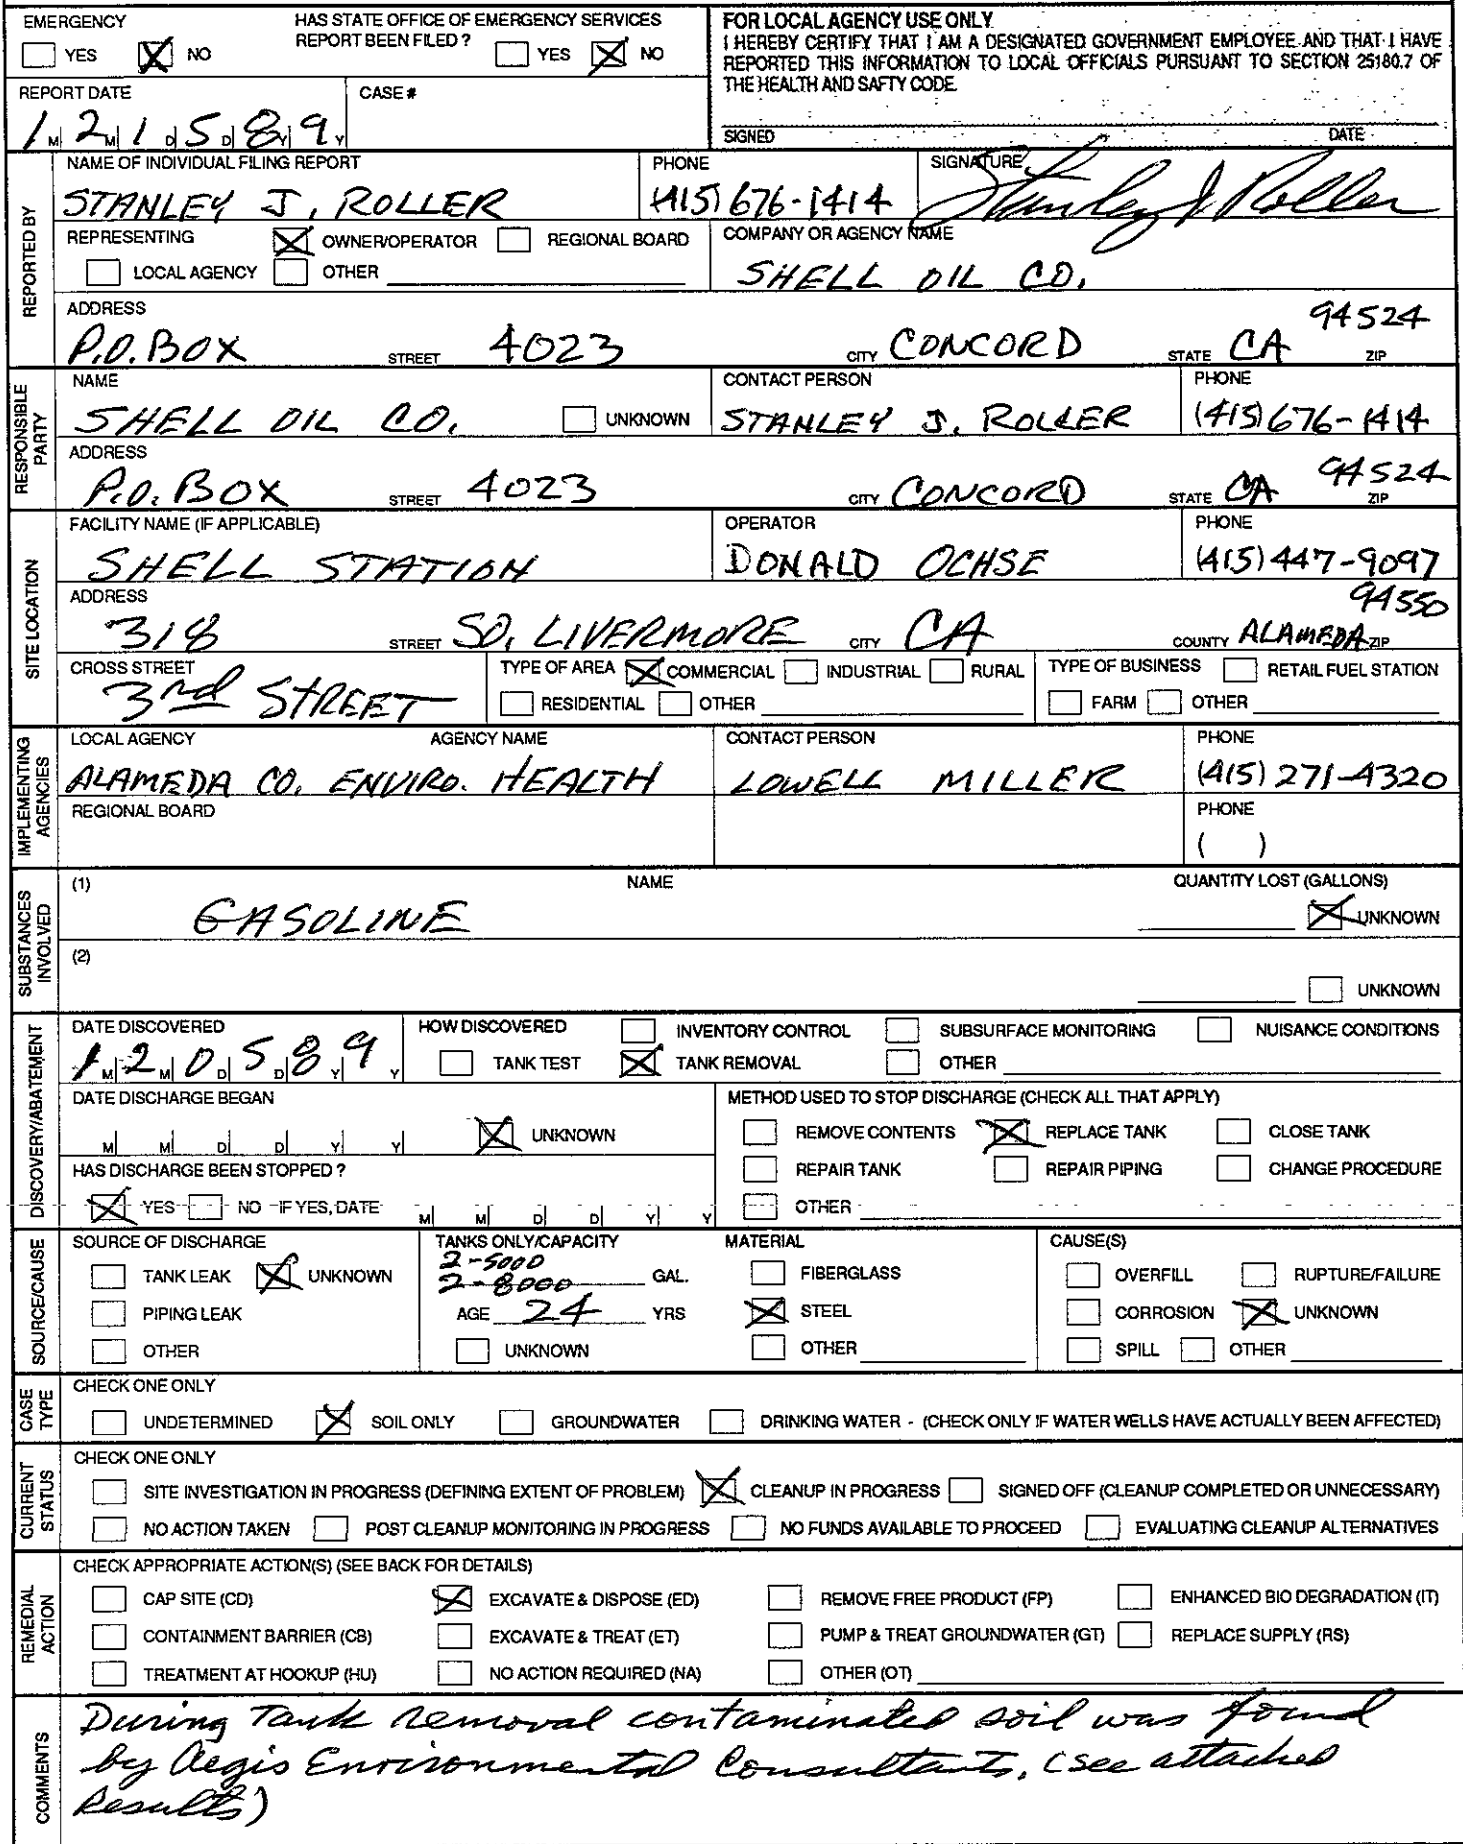 EMERGENCY
YES NO
HAS STATE OFFICE OF EMERGENCY SERVICES
REPORT BEEN FILED ? YES NO
FOR LOCAL AGENCY USE ONLY
I HEREBY CERTIFY THAT I AM A DESIGNATED GOVERNMENT EMPLOYEE AND THAT I HAVE
REPORTED THIS INFORMATION TO LOCAL OFFICIALS PURSUANT TO SECTION 25180.7 OF
THE HEALTH AND SAFTY CODE.
SIGNED DATE
REPORT DATE
1 M 2 M 1 D 5 D 8 Y 9 Y
CASE #
REPORTED BY
NAME OF INDIVIDUAL FILING REPORT
STANLEY J. ROLLER
PHONE
(415) 676-1414
SIGNATURE
Stanley J Roller
REPRESENTING OWNER/OPERATOR REGIONAL BOARD
LOCAL AGENCY OTHER
COMPANY OR AGENCY NAME
SHELL OIL CO.
ADDRESS
P.O. BOX STREET 4023 CITY CONCORD STATE CA 94524 ZIP
RESPONSIBLE
PARTY
NAME
SHELL OIL CO. UNKNOWN
CONTACT PERSON
STANLEY J. ROLLER
PHONE
(415) 676-1414
ADDRESS
P.O. BOX STREET 4023 CITY CONCORD STATE CA 94524 ZIP
SITE LOCATION
FACILITY NAME (IF APPLICABLE)
SHELL STATION
OPERATOR
DONALD OCHSE
PHONE
(415) 447-9097
ADDRESS
318 STREET SO. LIVERMORE CITY CA COUNTY ALAMEDA 94550 ZIP
CROSS STREET
3rd STREET
TYPE OF AREA COMMERCIAL INDUSTRIAL RURAL
RESIDENTIAL OTHER
TYPE OF BUSINESS RETAIL FUEL STATION
FARM OTHER
IMPLEMENTING
AGENCIES
LOCAL AGENCY AGENCY NAME
ALAMEDA CO. ENVIRO. HEALTH
CONTACT PERSON
LOWELL MILLER
PHONE
(415) 271-4320
REGIONAL BOARD
PHONE
( )
SUBSTANCES
INVOLVED
(1) NAME
GASOLINE
QUANTITY LOST (GALLONS)
UNKNOWN
(2)
UNKNOWN
DISCOVERY/ABATEMENT
DATE DISCOVERED
1 M 2 M 0 D 5 D 8 Y 9 Y
HOW DISCOVERED INVENTORY CONTROL SUBSURFACE MONITORING NUISANCE CONDITIONS
TANK TEST TANK REMOVAL OTHER
DATE DISCHARGE BEGAN
M M D D Y Y UNKNOWN
METHOD USED TO STOP DISCHARGE (CHECK ALL THAT APPLY)
REMOVE CONTENTS REPLACE TANK CLOSE TANK
REPAIR TANK REPAIR PIPING CHANGE PROCEDURE
OTHER
HAS DISCHARGE BEEN STOPPED ?
YES NO IF YES, DATE M M D D Y Y
SOURCE/CAUSE
SOURCE OF DISCHARGE
TANK LEAK UNKNOWN
PIPING LEAK
OTHER
TANKS ONLY/CAPACITY
2-5000
2-8000 GAL.
AGE 24 YRS
UNKNOWN
MATERIAL
FIBERGLASS
STEEL
OTHER
CAUSE(S)
OVERFILL RUPTURE/FAILURE
CORROSION UNKNOWN
SPILL OTHER
CASE
TYPE
CHECK ONE ONLY
UNDETERMINED SOIL ONLY GROUNDWATER DRINKING WATER - (CHECK ONLY IF WATER WELLS HAVE ACTUALLY BEEN AFFECTED)
CURRENT
STATUS
CHECK ONE ONLY
SITE INVESTIGATION IN PROGRESS (DEFINING EXTENT OF PROBLEM) CLEANUP IN PROGRESS SIGNED OFF (CLEANUP COMPLETED OR UNNECESSARY)
NO ACTION TAKEN POST CLEANUP MONITORING IN PROGRESS NO FUNDS AVAILABLE TO PROCEED EVALUATING CLEANUP ALTERNATIVES
REMEDIAL
ACTION
CHECK APPROPRIATE ACTION(S) (SEE BACK FOR DETAILS)
CAP SITE (CD) EXCAVATE & DISPOSE (ED) REMOVE FREE PRODUCT (FP) ENHANCED BIO DEGRADATION (IT)
CONTAINMENT BARRIER (CB) EXCAVATE & TREAT (ET) PUMP & TREAT GROUNDWATER (GT) REPLACE SUPPLY (RS)
TREATMENT AT HOOKUP (HU) NO ACTION REQUIRED (NA) OTHER (OT)
COMMENTS
During Tank removal contaminated soil was found
by Aegis Environmental Consultants, (see attached
Results)